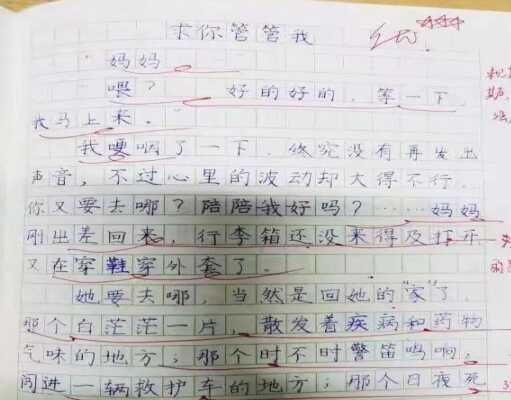 求你管管我
妈妈
喂？ 好的好的，等一下，
我马上来。
我哽咽了一下，终究没有再发出
声音，不过心里的波动却大得不行。
你又要去哪？陪陪我好吗？……妈妈
刚出差回来，行李箱还没来得及打开
又在穿鞋穿外套了。
她要去哪，当然是回她的“家”了，
那个白茫茫一片，散发着疾病和药物
气味的地方；那个时不时警笛鸣响，
闯进一辆救护车的地方；那个日夜死